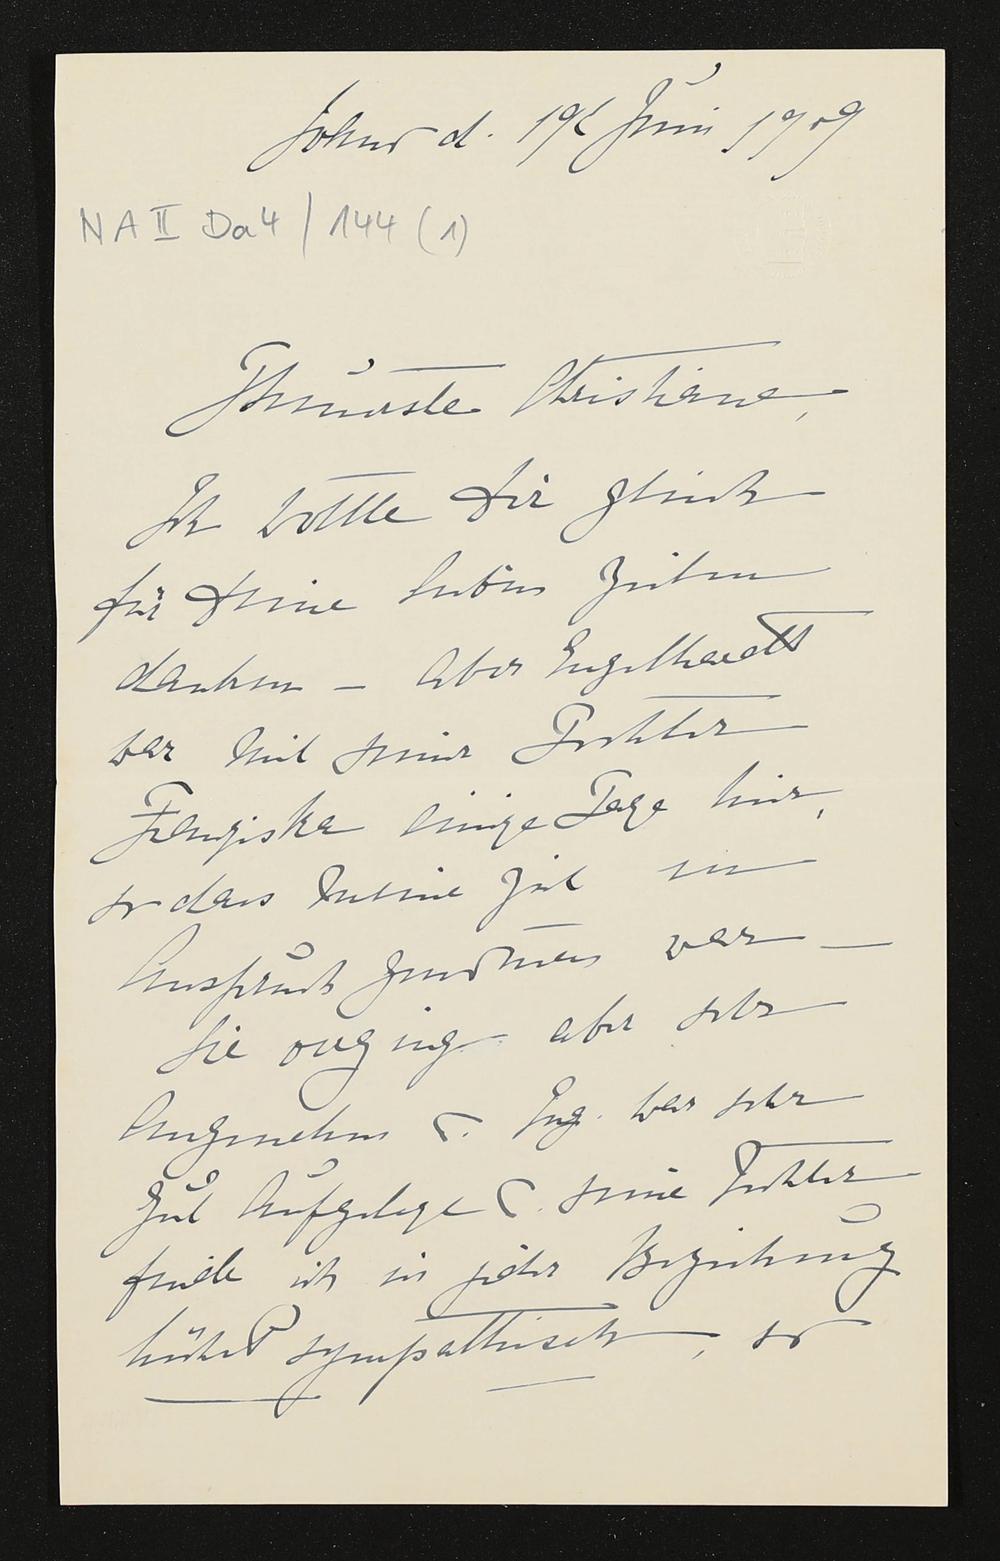 d. 19t Juni 1909
NA II Da4 / 144 (1)
Theuerste Christiane,
Ich wollte Dir gleich
für Deine lieben Zeilen
danken – aber Engelhardt
war mit seiner Tochter
Franziska einige Tage hier,
so dass meine Zeit in
Anspruch genommen war –
Sie verging aber sehr
angenehm u. Eng. war sehr
gut aufgelegt u. seine Tochter
finde ich in jeder Beziehung
höchst sympathisch, so